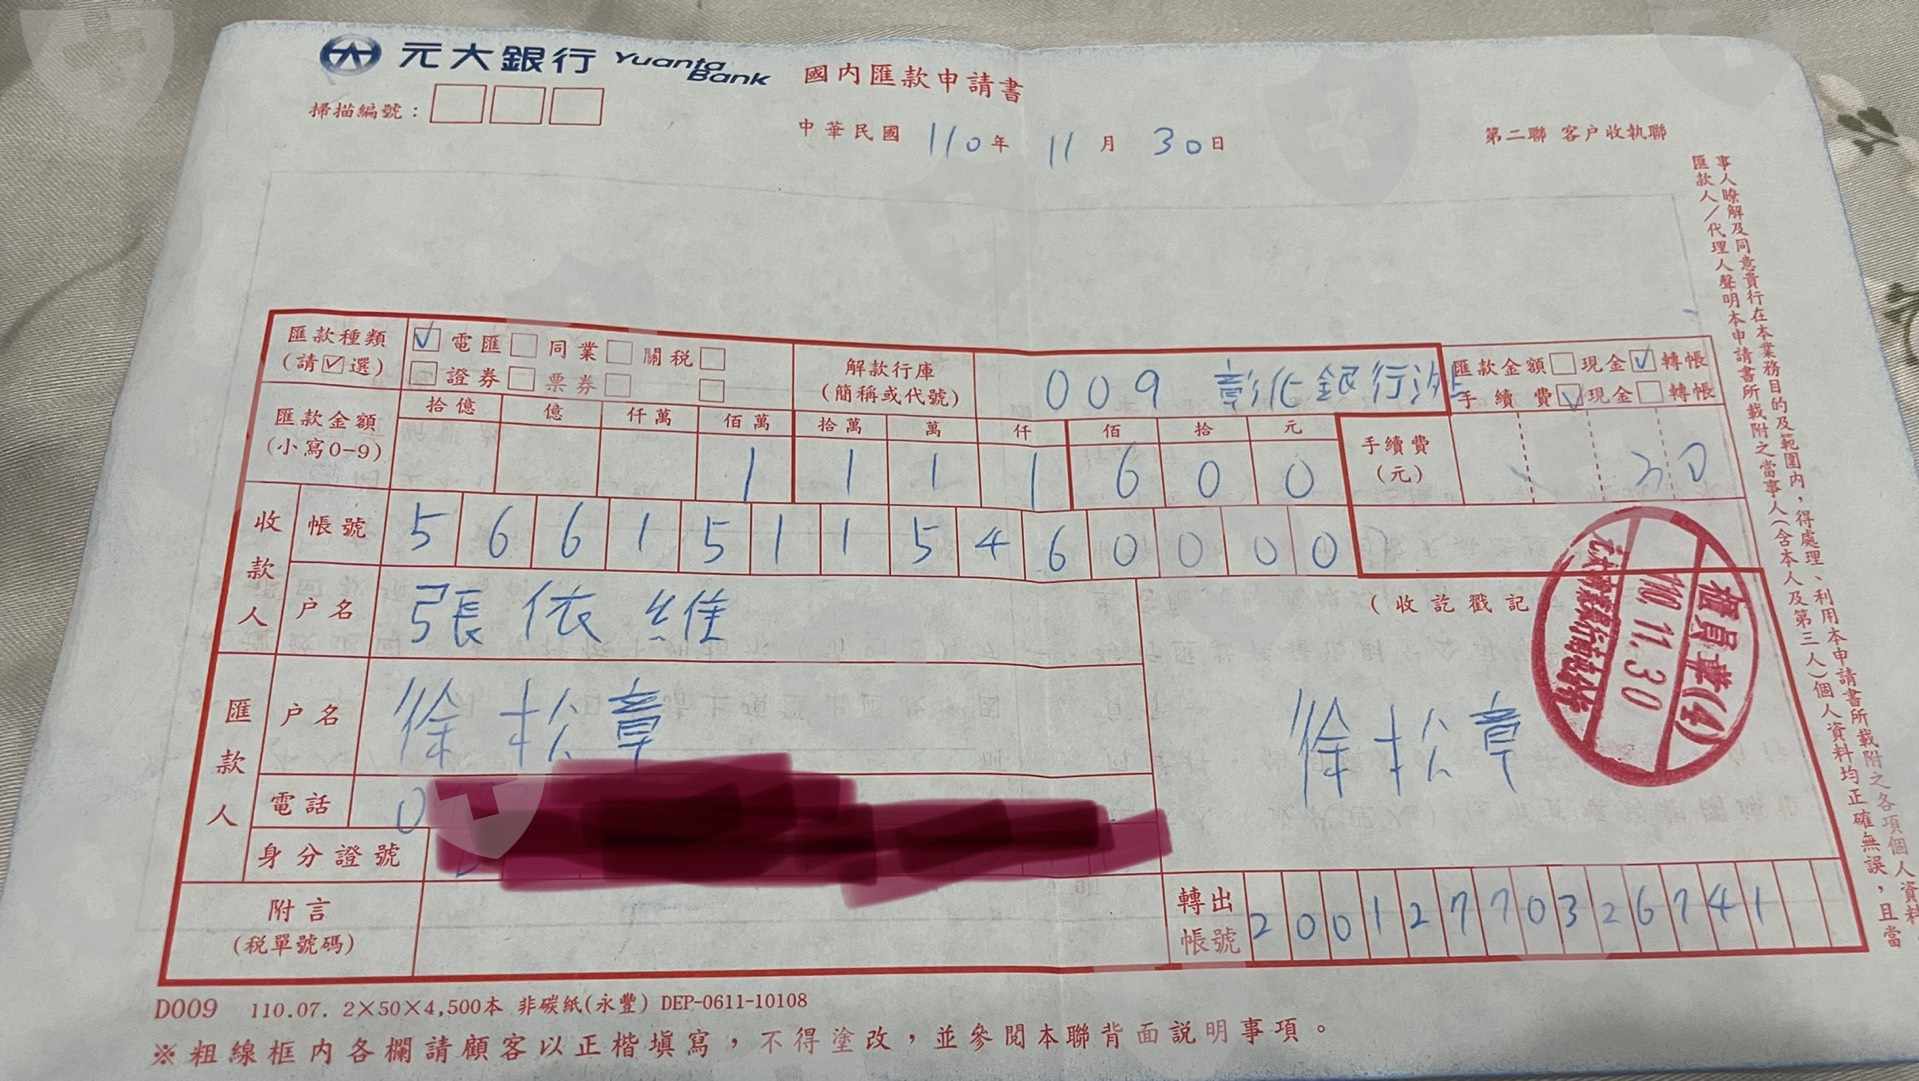 元大銀行 Yuanta Bank 國內匯款申請書
掃描編號：
中華民國 110年 11月 30日
第二聯 客戶收執聯
匯款種類 (請☑選)
☑電匯 □同業 □關稅 □
□證券 □票券 □ □
解款行庫 (簡稱或代號)
009 彰化銀行
匯款金額 □現金 ☑轉帳
手續費 ☑現金 □轉帳
匯款金額 (小寫0-9)
拾億 億 仟萬 佰萬 拾萬 萬 仟 佰 拾 元
1 1 1 1 6 0 0
手續費 (元) 30
收款人
帳號 5 6 6 1 5 1 1 5 4 6 0 0 0 0
戶名 張依維
(收訖戳記
櫃員章(4)
110.11.30
匯款人
戶名 徐松章
徐松章
電話 0
身分證號
附言 (稅單號碼)
轉出帳號 2 0 0 1 2 7 7 0 3 2 6 7 4 1
匯款人／代理人聲明本申請書所載附之當事人(含本人及第三人)個人資料均正確無誤，且當
事人瞭解及同意貴行在本業務目的及範圍內，得處理、利用本申請書所載附之各項個人資料
D009 110.07. 2×50×4,500本 非碳紙(永豐) DEP-0611-10108
※粗線框內各欄請顧客以正楷填寫，不得塗改，並參閱本聯背面說明事項。